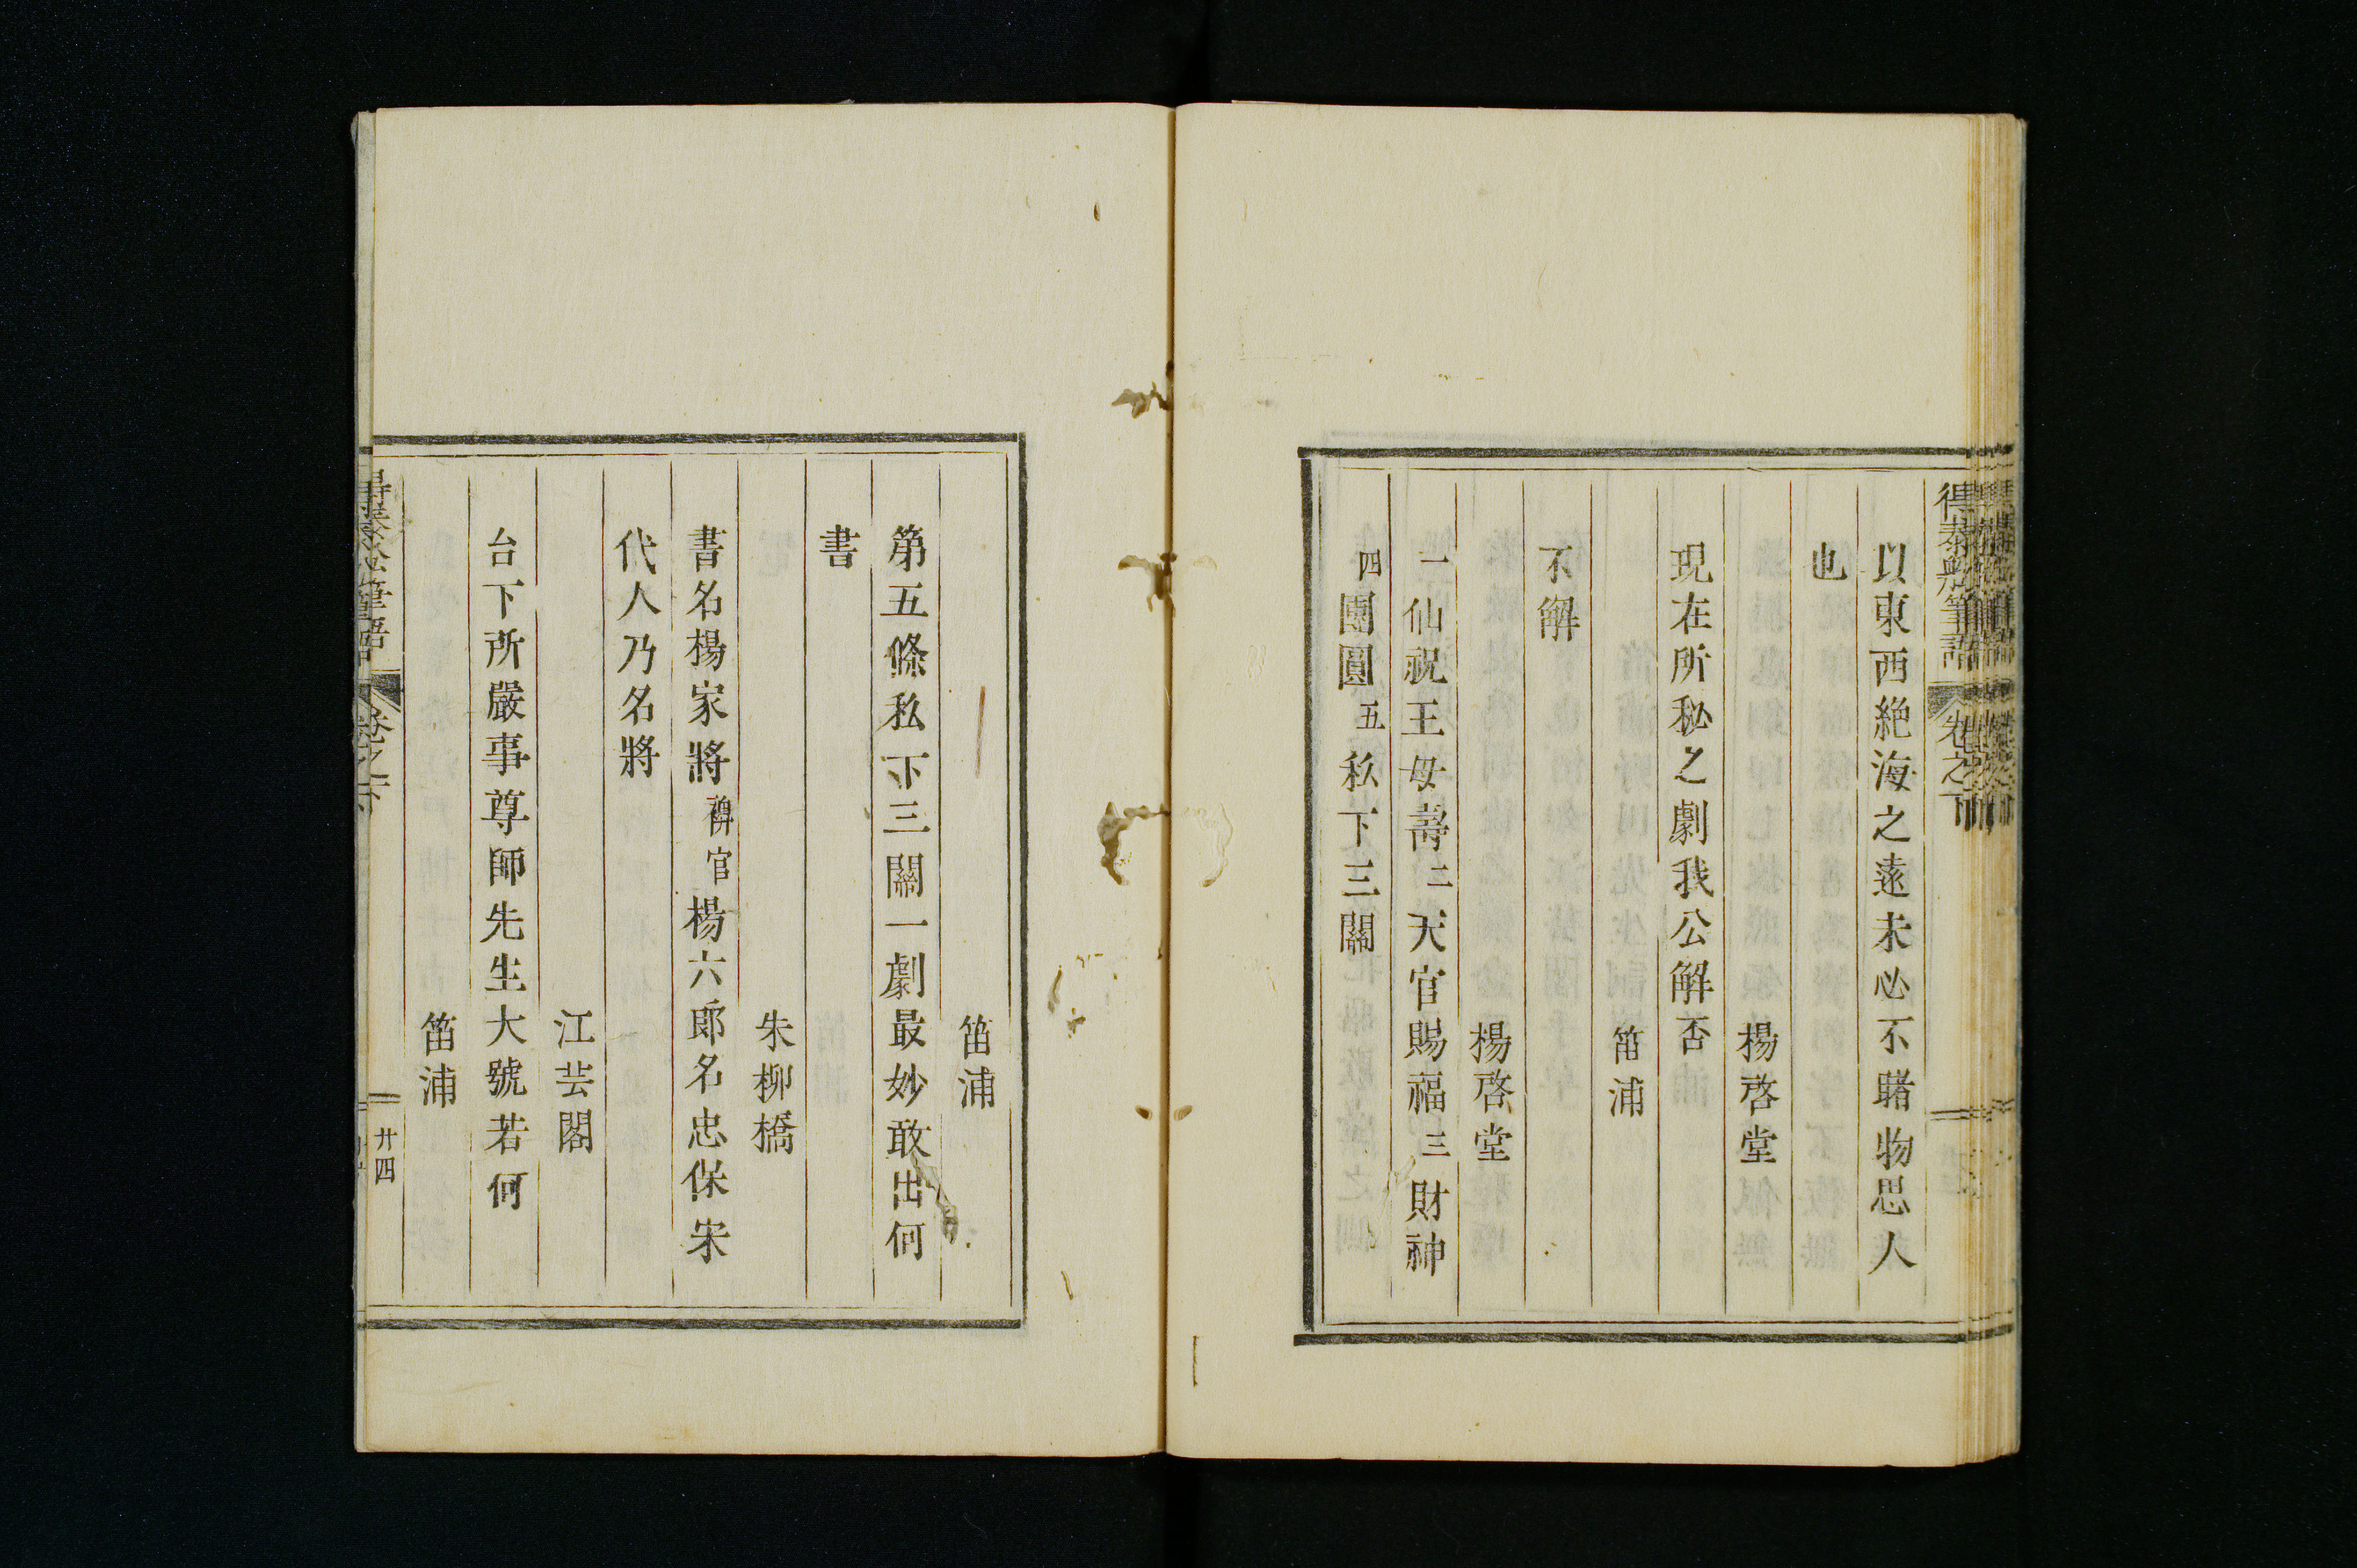 得泰船筆語 卷之下
以東西絶海之遠未必不睹物思人
也
楊啓堂
現在所秘之劇我公解否
笛浦
不解
楊啓堂
一仙祝王母壽二天官賜福三財神
四團圓五私下三關
笛浦
第五條私下三關一劇最妙敢出何
書
朱柳橋
書名楊家將稗官楊六郎名忠保宋
代人乃名將
江芸閣
台下所嚴事尊師先生大號若何
笛浦
得泰船筆語 卷之下 廿四